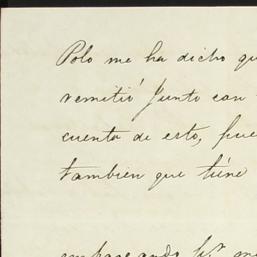 Polo me ha dicho qu
remitió junto con
cuenta de esto, pue
tambien que tiéne